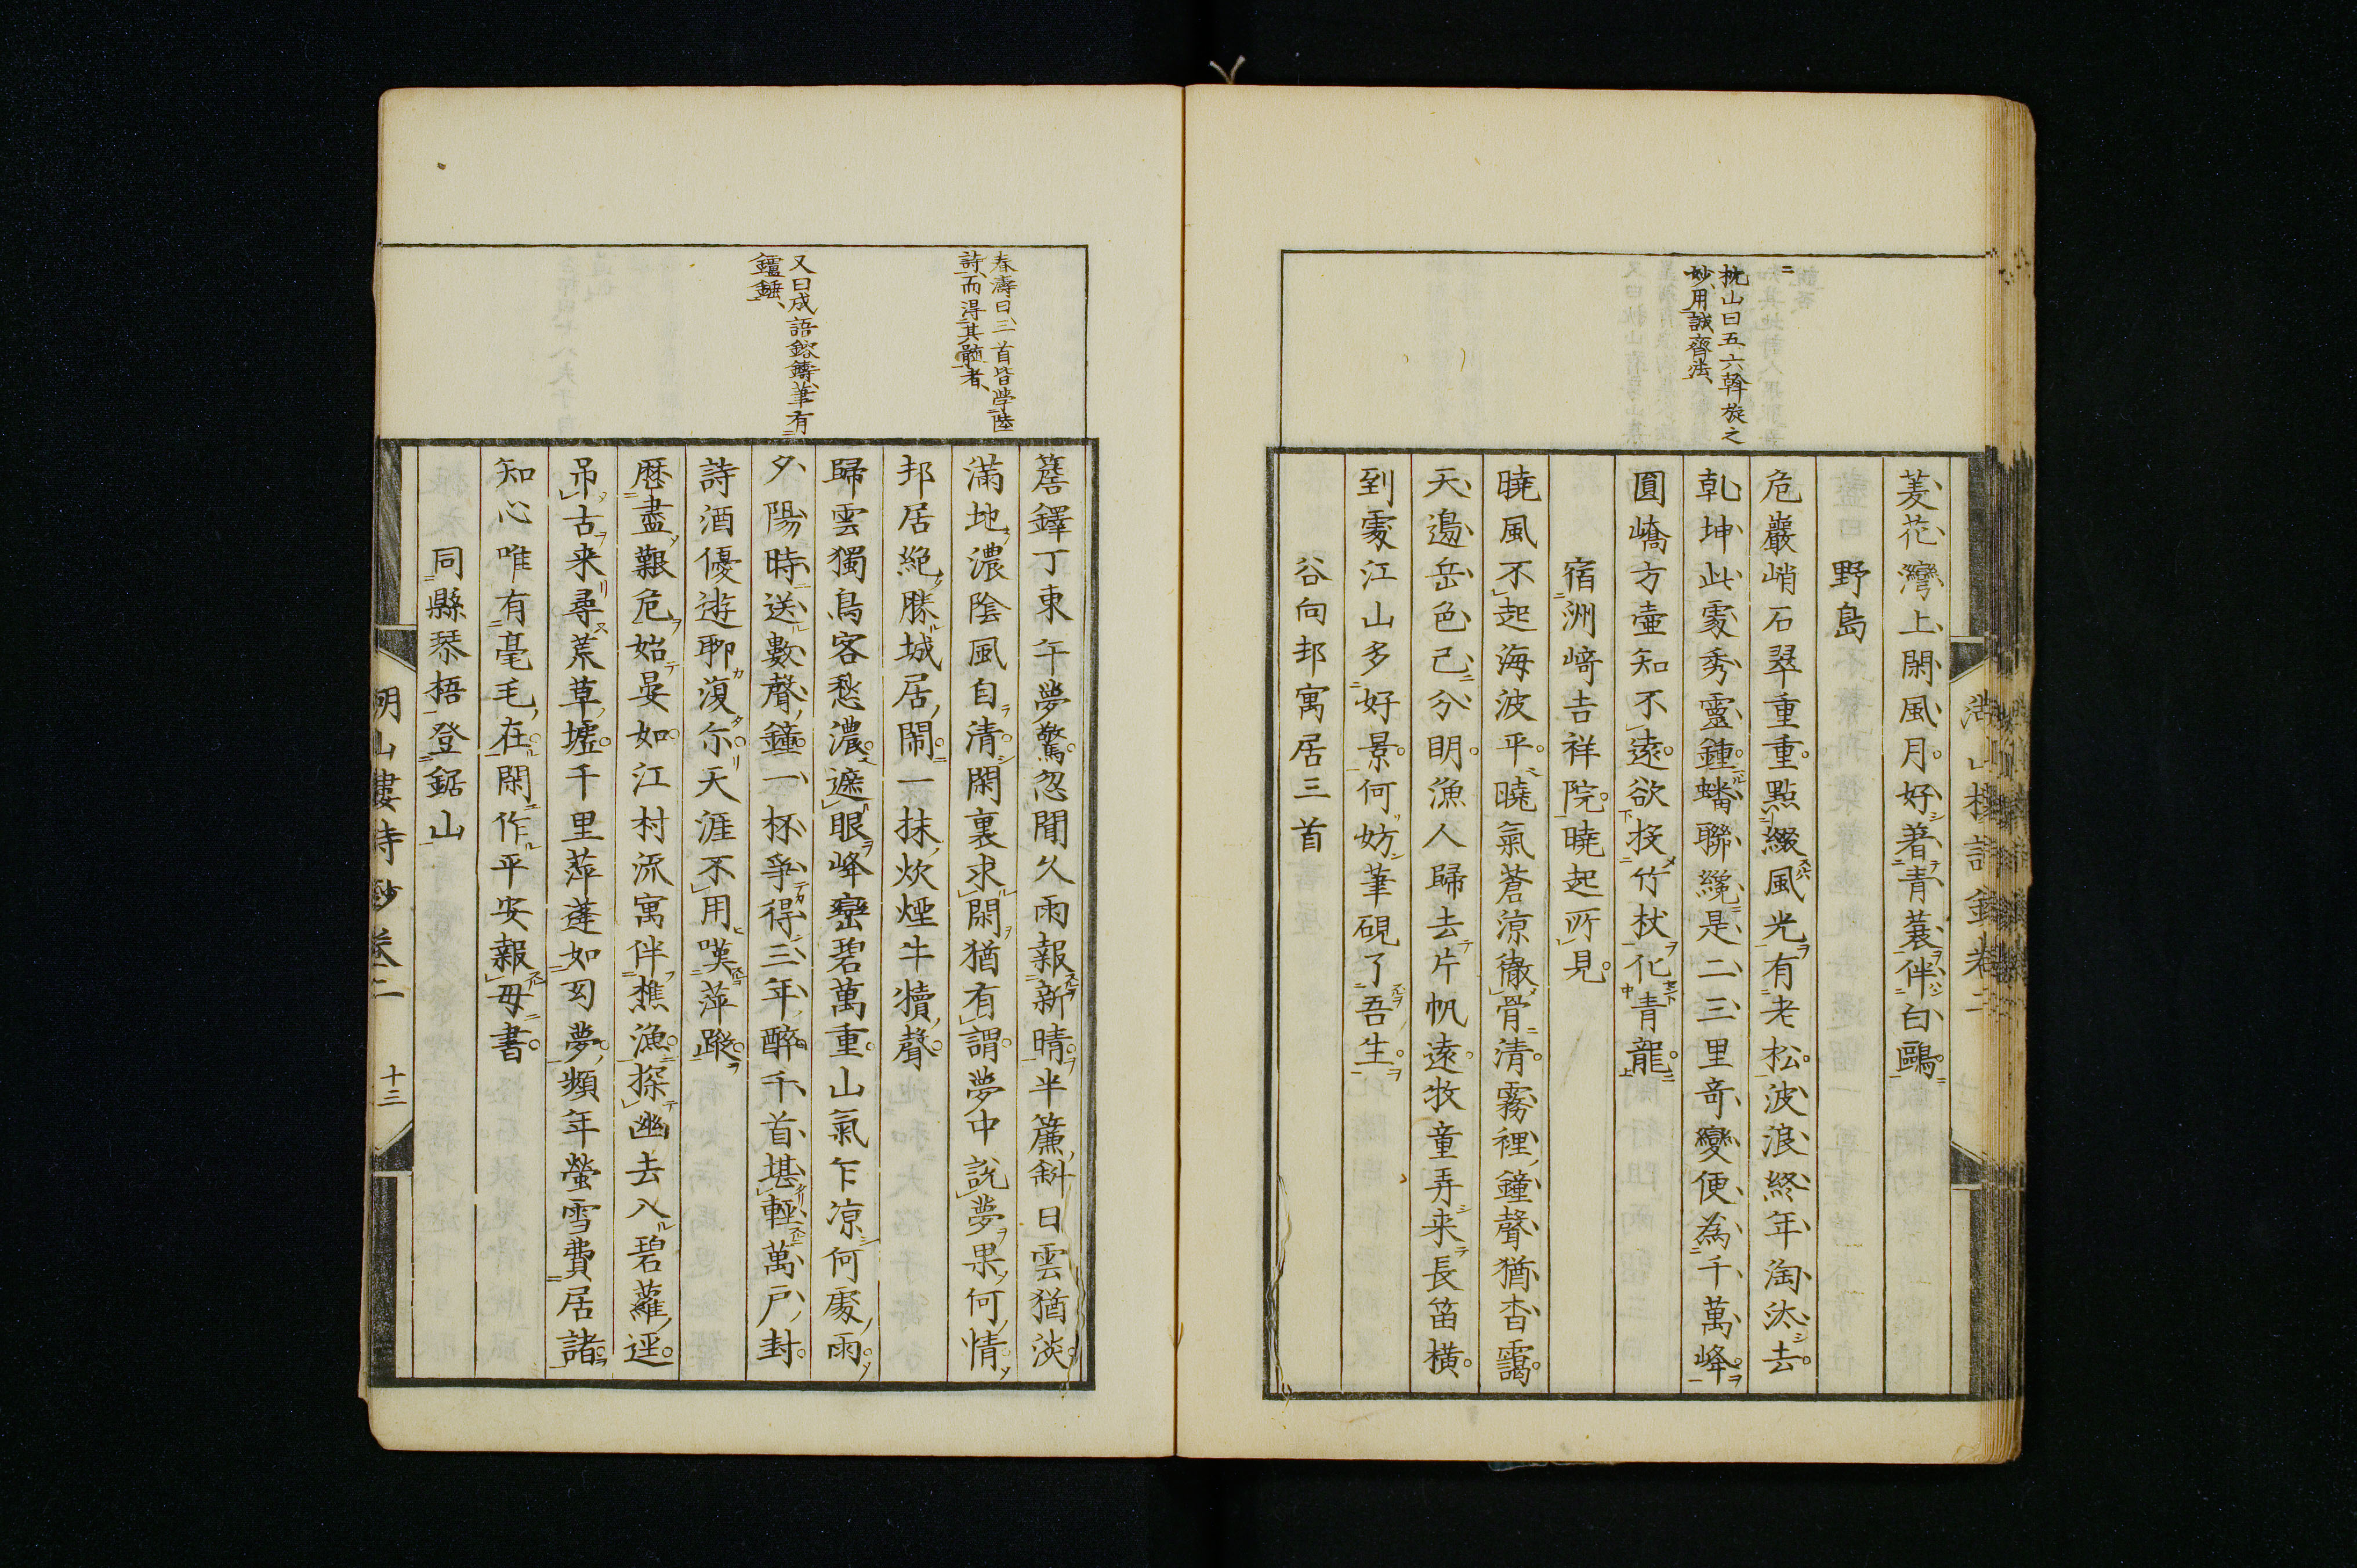 枕山曰五六斡旋之
妙用誠齊法
菱花灣上閑風月好著青蓑伴白鷗
野島
危巖峭石翠重重點綴風光有老松波浪終年淘汰去
乹坤此處秀靈鍾蟠聯纔是二三里奇變便為千萬峰
圓嶠方壷知不遠欲投竹杖化青龍
宿洲﨑吉祥院曉起所見
曉風不起海波平曉氣蒼涼徹骨清霧裡鐘聲猶杳靄
天邊岳色已分明漁人歸去片帆遠牧童弄来長笛橫
到處江山多好景何妨筆硯了吾生
谷向邨寓居三首
春濤曰三首皆學陸
詩而得其髓者
又曰成語鎔鑄筆有
鑪錘
簷鐸丁東午夢驚忽聞久雨報新晴半簾斜日雲猶淡
滿地濃陰風自清閑裏求閑猶有謂夢中說夢果何情
邨居絶勝城居鬧一抹炊煙牛犢聲
歸雲獨鳥客愁濃遮眼峰巒碧萬重山氣乍涼何處雨
夕陽時送數聲鐘一杯爭得三年醉千首堪輕萬戸封
詩酒優遊聊復尓天涯不用嘆萍蹤
歷盡艱危始晏如江村流寓伴樵漁探幽去入碧蘿逕
吊古来尋荒草墟千里萍蓬如幻夢頻年螢雪費居諸
知心唯有毫毛在閑作平安報母書
同縣琴梧登鋸山
湖山樓詩鈔卷二 十三